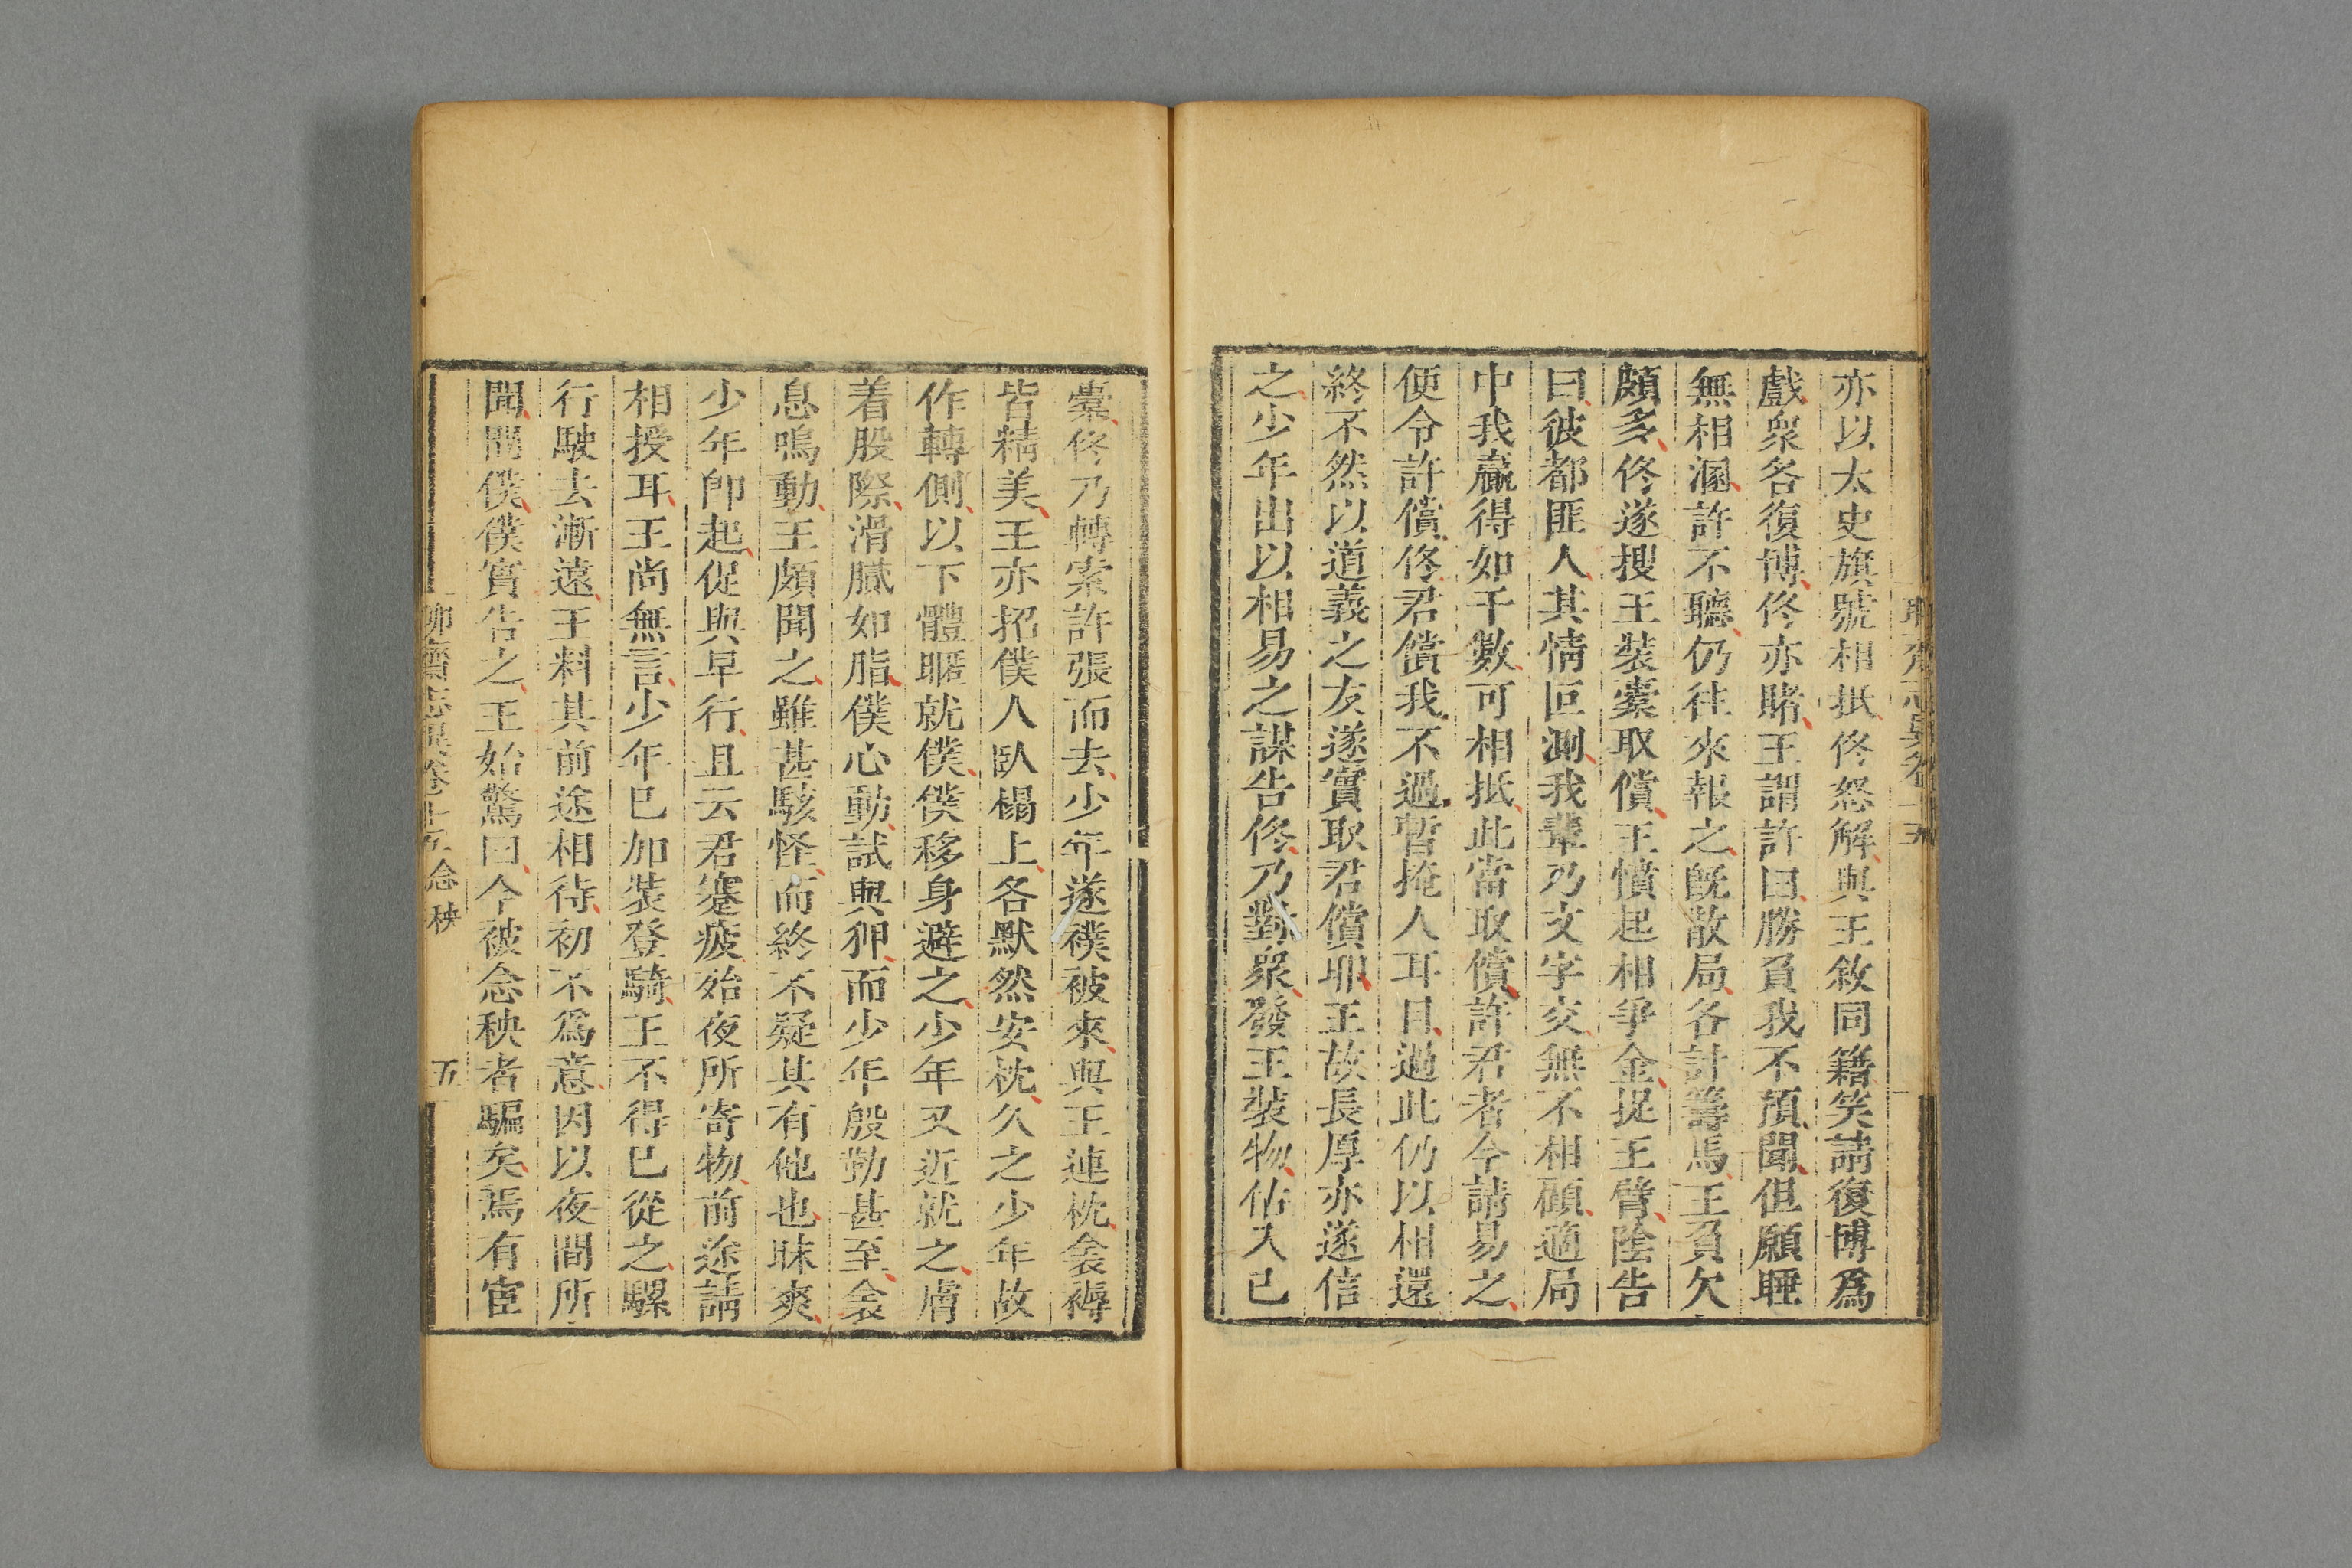 亦以太史旗號相抵佟怒解與王敘同籍笑請復博爲
戲衆各復博佟亦賭王謂許曰勝負我不預聞但願睡
無相溷許不聽仍往來報之旣散局各計籌馬王負欠
頗多佟遂搜王裝橐取償王憤起相爭金捉王臂陰告
曰彼都匪人其情叵測我輩乃文字交無不相顧適局
中我贏得如干數可相抵此當取償許君者今請易之
便令許償佟君償我不過暫掩人耳目過此仍以相還
終不然以道義之友遂實取君償耶王故長厚亦遂信
之少年出以相易之謀告佟乃對衆發王裝物估入已
橐佟乃轉索許張而去少年遂襆被來與王連枕衾褥
皆精美王亦招僕人臥榻上各默然安枕久之少年故
作轉側以下體暱就僕僕移身避之少年又近就之膚
着股際滑膩如脂僕心動試與狎而少年殷勤甚至衾
息鳴動王頗聞之雖甚駭怪而終不疑其有他也昧爽
少年卽起促與早行且云君蹇疲殆夜所寄物前途請
相授耳王尚無言少年已加裝登騎王不得已從之騾
行駛去漸遠王料其前途相待初不爲意因以夜間所
聞問僕僕實告之王始驚曰今被念秧者騙矣焉有宦
聊齋志異卷十五 念秧 五